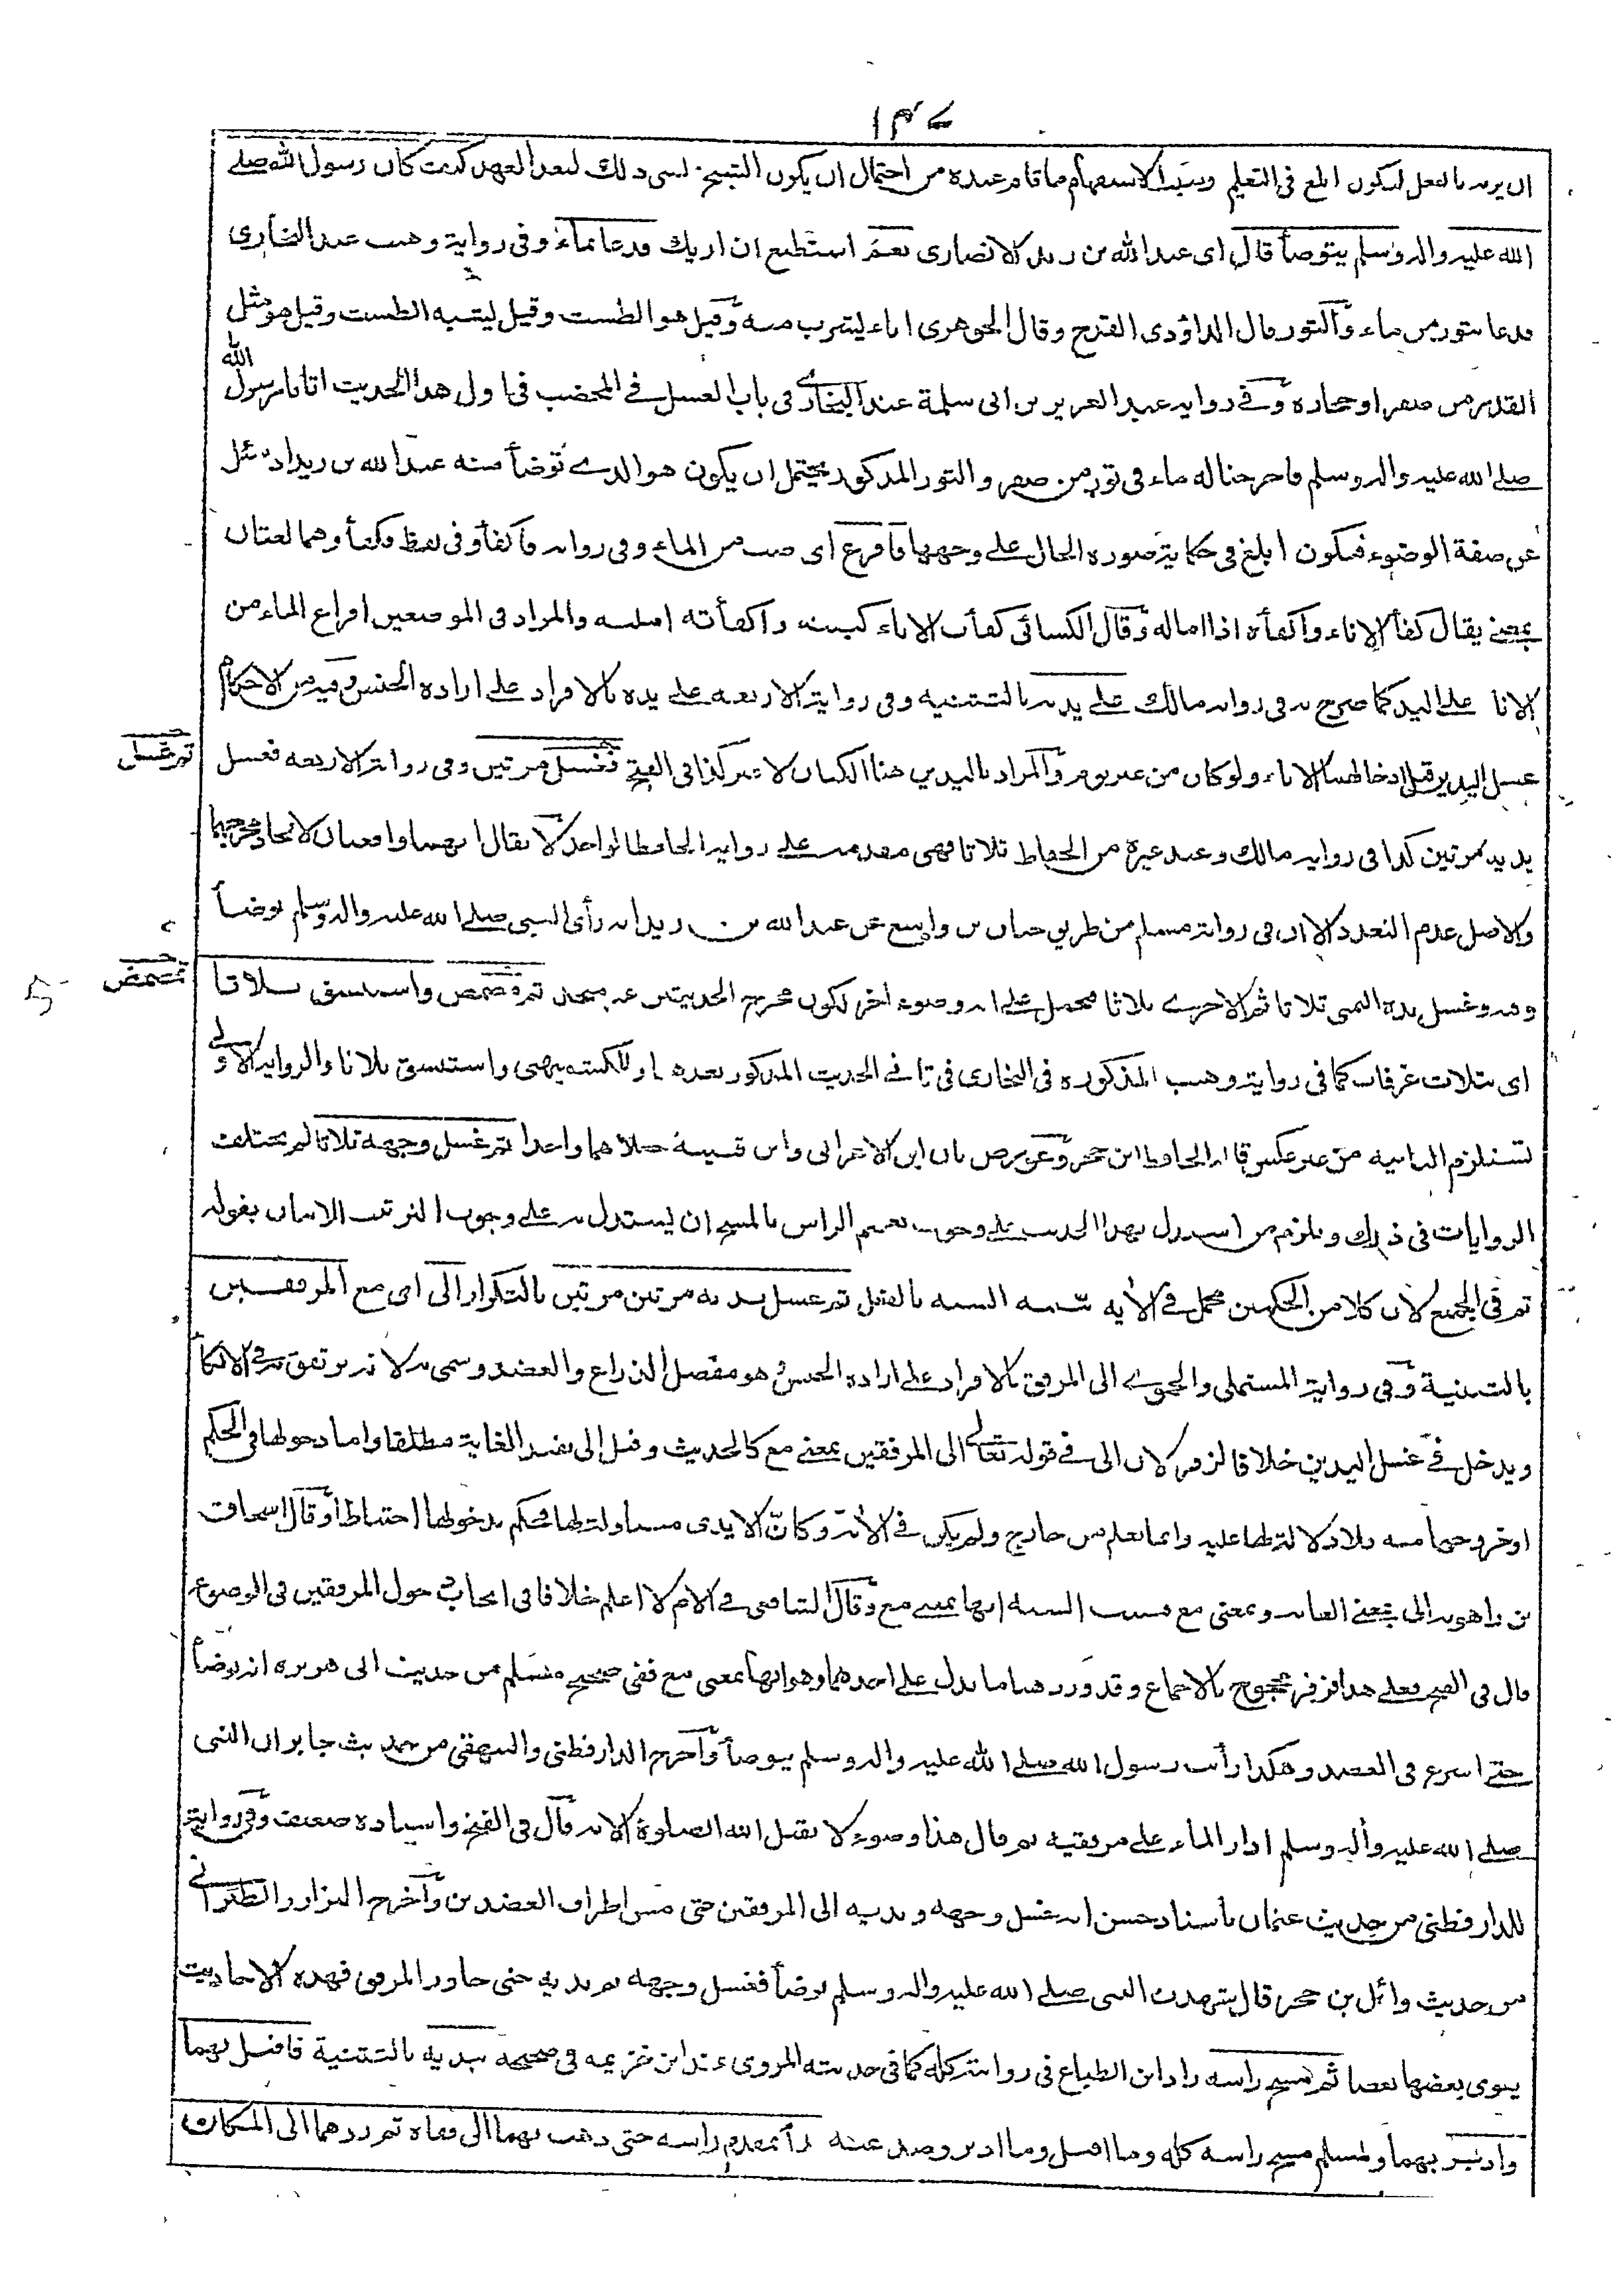 ١٣٧
ان يريه بالفعل ليكون ابلغ فى التعليم وسبب الاستفهام ما قام عنده من احتمال ان يكون الشيخ نسى ذلك لبعد العهد كيف كان رسول الله صلے
الله عليه واله وسلم يتوضأ قال اى عبد الله بن زيد الانصارى نعم استطيع ان اريك فدعا بماء وفى رواية وهب عند البخارى
فدعا بتور من ماء والتور قال الداؤدى القدح وقال الجوهرى اناء يشرب منه وقيل هو الطست وقيل يشبه الطست وقيل هو مثل
القدر من صفر او حجارة وفے رواية عبد العزيز بن ابى سلمة عند البخارے فى باب الغسل فے المخضب فى اول هذا الحديث اتانا رسول الله
صلے الله عليه واله وسلم فاخرجنا له ماء فى تور من صفر والتور المذكور يحتمل ان يكون هو الذے توضأ منه عبد الله بن زيد اذ سئل
عن صفة الوضوء فيكون ابلغ فى حكاية صورة الحال علے وجهها فافرغ اى صب من الماء وفى رواية فاكفأ وفى لفظ فكفأ وهما لغتان
بمعنے يقال كفأ الاناء واكفأه اذا اماله وقال الكسائى كفأت الاناء كببته واكفأته املته والمراد فى الموضعين افراغ الماء من
الانا علے اليد كما صرح به فى رواية مالك علے يديه بالتثنيه وفى رواية الاربعه علے يده بالافراد علے ارادة الجنس وفيه من الاحكام
غسل اليدين قبل ادخالهما الاناء ولو كان من غير نوم والمراد باليدين هنا الكفان لا غير كذا فى الفتح فغسل مرتين وفى رواية الاربعه فغسل
ثم غسل
يديه مرتين كذا فى رواية مالك وعند غيره من الحفاظ ثلاثا فهى مقدمة علے رواية الحافظ الواحد لا يقال انهما واقعتان لاتحاد مخرجهما
والاصل عدم التعدد الا ان فى رواية مسلم من طريق حبان بن واسع عن عبد الله بن زيد انه رأى النبى صلے الله عليه واله وسلم توضأ
وفيه وغسل يده اليمنى ثلاثا ثم الاخرے ثلاثا فيحمل علے انه وضوء اخر لكون مخرج الحديثين غير متحد ثم تمضمض واستنشق ثلاثا
تمضمض
اى بثلاث غرفات كما فى رواية وهب المذكوره فى البخارى فى تانے الحديث المذكور بعده واستنشق ثلاثا والرواية الاولے
تستلزم الثانيه من غير عكس قاله الحافظ ابن حجر وعورض بان ابن الاعرابى وابن قتيبة جعلاهما واحدا ثم غسل وجهه ثلاثا لم تختلف
الروايات فى ذلك ويلزم من استدل بهذا الحديث علے وجوب تعميم الراس بالمسح ان يستدل به علے وجوب الترتيب الاتيان بقوله
ثم فى الجميع لان كلا من الحكمين مجمل فے الأيه بينته السنه بالفعل ثم غسل يديه مرتين مرتين بالتكرار الى اى مع المرفقين
بالتثنية وفى رواية المستملى والحموے الى المرفق بالافراد علے ارادة الجنس هو مفصل الذراع والعضد وسمى به لانه يرتفق به فے الاتكا
ويدخل فے غسل اليدين خلافا لزفر لان الى فے قوله تعالے الى المرفقين بمعنے مع كالحديث وقيل الى تفيد الغاية مطلقا واما دخولها فى الحكم
او خروجها منه فلا دلالة لها عليه وانما يعلم من خارج ولم يكن فے الأية وكان الايدى متناولة لها فحكم بدخولها احتياطا وقال اسحاق
بن راهويه الى بمعنے الغايه وبمعنى مع فبينت السنه انها بمعنے مع وقال الشافعى فے الام لا اعلم خلافا فى ايجاب دخول المرفقين فى الوضوء
قال فى الفتح فعلے هذا فزفر محجوج بالاجماع وقد ورد هنا ما يدل علے احدهما وهو انها بمعنى مع ففى صحيح مسلم من حديث ابى هريرة انه توضأ
حتے اسرع فى العضد وهكذا رأيت رسول الله صلے الله عليه واله وسلم يتوضأ واخرج الدارقطنى والبيهقى من حديث جابر ان النبى
صلے الله عليه واله وسلم ادار الماء على مرفقيه ثم قال هذا وضوء لا يقبل الله الصلوة الا به قال فى الفتح واسناده ضعيف وفى رواية
للدارقطنى من حديث عثمان باسناد حسن انه غسل وجهه ويديه الى المرفقين حتى مس اطراف العضدين واخرج البزار والطبرانے
من حديث وائل بن حجر قال شهدت النبى صلے الله عليه واله وسلم توضأ فغسل وجهه ثم يديه حتى جاوز المرفق فهذه الاحاديث
يقوى بعضها بعضا ثم مسح راسه زاد ابن الطباع فى روايته كله كما فى حديثه المروى عند ابن خزيمه فى صحيحه بيديه بالتثنية فاقبل بهما
وادبر بهما ولمسلم مسح راسه كله وما اقبل وما ادبر وصدغيه بدأ بمقدم راسه حتى ذهب بهما الى قفاه ثم ردهما الى المكان